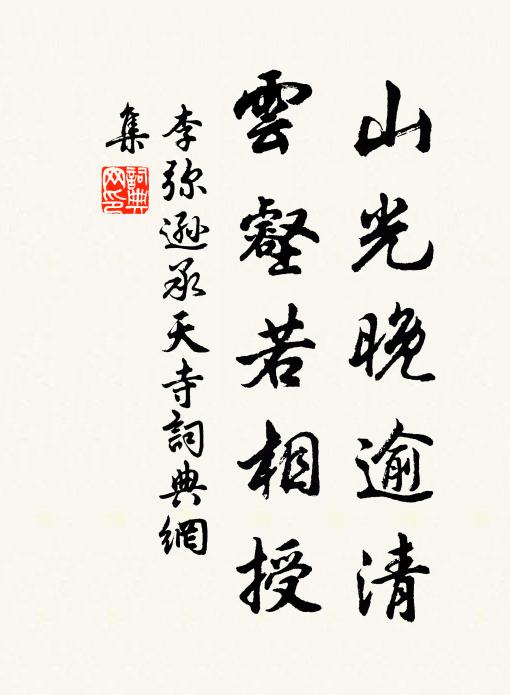 山光晚逾清
雲壑若相授
李弥遜承天寺詞典網
集
詞典网印